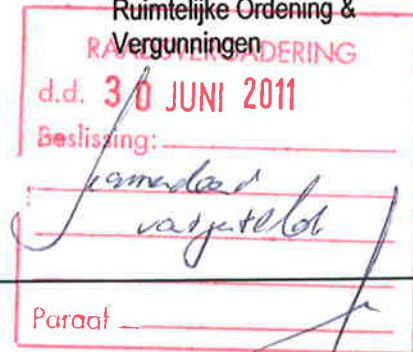 Ruimtelijke Ordening &
Vergunningen
RAADSVERGADERING
d.d. 30 JUNI 2011
Beslissing:
geamendeerd
vastgesteld
Paraaf